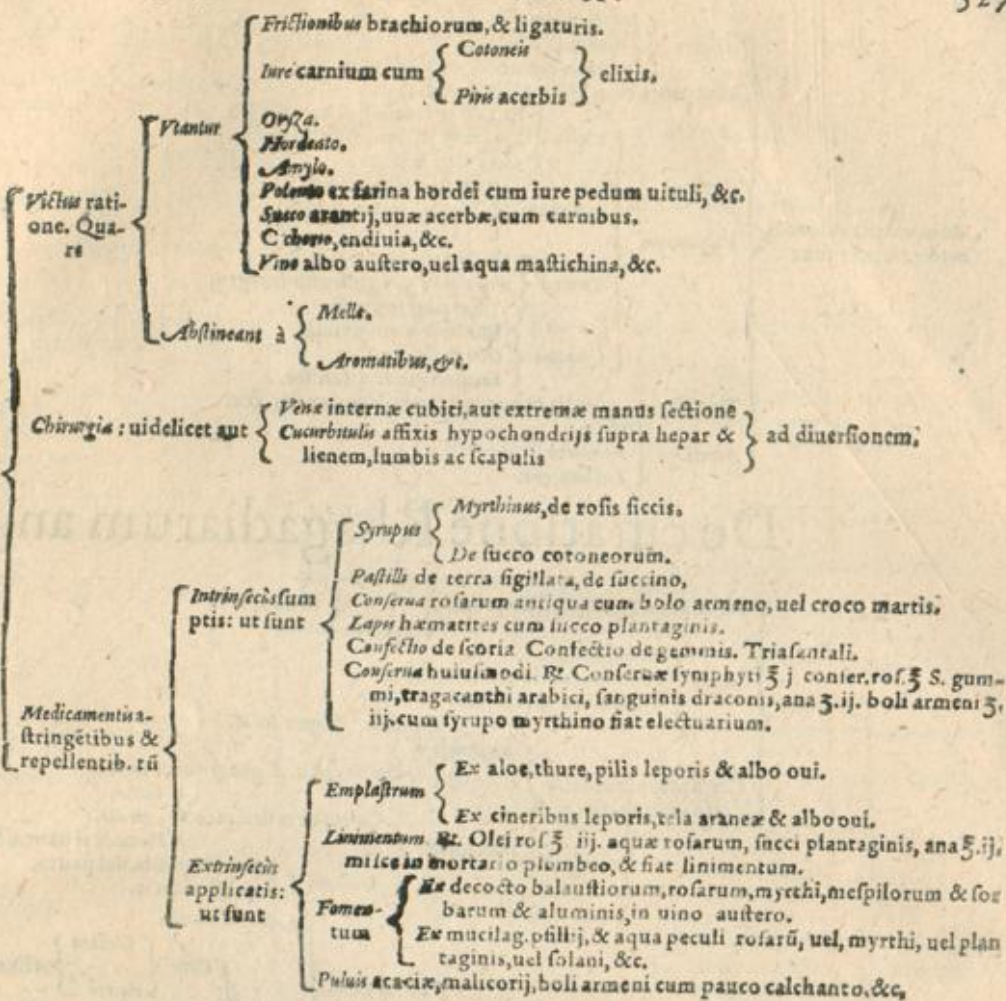 Frictionibus brachiorum, & ligaturis.
Iure carnium cum
Cotoneis
Piris acerbis
elixis.
Vtantur
Oryza.
Hordeato.
Amylo.
Polenta ex farina hordei cum iure pedum uituli, &c.
Succo arantij, uuæ acerbæ, cum carnibus.
C choreo, endiuia, &c.
Vino albo austero, uel aqua mastichina, &c.
Victus rati-
one. Qua-
re
Abstineant à
Melle.
Aromatibus, &c.
Chirurgia : uidelicet aut
Venæ internæ cubiti, aut extremæ manus sectione
Cucurbitulis affixis hypochondrijs supra hepar &
lienem, lumbis ac scapulis
ad diuersionem.
Syrupus
Myrthinus, de rosis siccis.
De succo cotoneorum.
Pastilli de terra sigillata, de succino.
Intrinsecùs sum
ptis: ut sunt
Conserua rosarum antiqua cum bolo armeno, uel croco martis.
Lapis hæmatites cum succo plantaginis.
Confectio de scoria Confectio de gemmis. Triasantali.
Conserua huiusmodi. ℞ Conseruæ symphyti ℥ j conser. ros. ℥ S. gum-
mi, tragacanthi arabici, sanguinis draconis, ana ʒ. ij. boli armeni ʒ.
iij. cum syrupo myrthino fiat electuarium.
Medicamentis a-
stringētibus &
repellentib. tū
Emplastrum
Ex aloe, thure, pilis leporis & albo oui.
Ex cineribus leporis, tela araneæ & albo oui.
Linimentum. ℞. Olei ros ℥ iij. aquæ rosarum, succi plantaginis, ana ℥. ij.
misce in mortario plombeo, & fiat linimentum.
Extrinsecùs
applicatis:
ut sunt
Fomen-
tum
Ex decocto balaustiorum, rosarum, myrthi, mespilorum & sor
barum & aluminis, in uino austero.
Ex mucilag. psillij, & aqua peculi rosarū, uel, myrthi, uel plan
taginis, uel solani, &c.
Puluis acaciæ, malicorij, boli armeni cum pauco calchanto, &c.